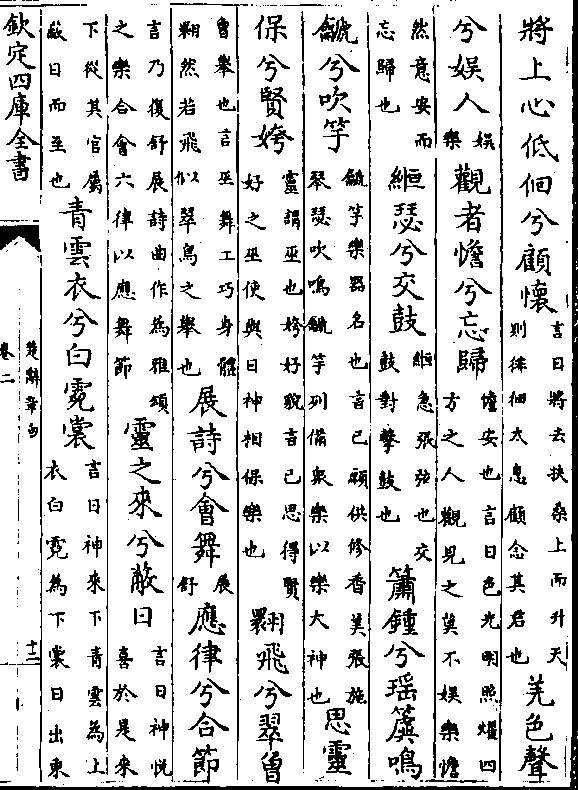 將上心低佪兮顧懷言日將去扶桑上而升天則徘徊太息顧念其君也羌色聲
兮娛人娛樂觀者憺兮忘歸憺安也言日色光明照燿四方之人觀見之莫不娛樂憺
然意安而忘歸也緪瑟兮交鼓緪急張弦也交鼓對擊鼓也簫鍾兮瑶簴鳴
䶵兮吹竽䶵竽樂器名也言己願供修香美張施琴瑟吹鳴䶵竽列備衆樂以樂大神也思靈
保兮賢姱靈謂巫也姱好貌言己思得賢好之巫使與日神相保樂也翾飛兮翠曾
曾舉也言巫舞工巧身體翾然若飛似翠鳥之舉也展詩兮會舞展舒應律兮合節
言乃復舒展詩曲作為雅頌之樂合會六律以應舞節靈之來兮蔽日言日神悦喜於是來
下從其官屬蔽日而至也青雲衣兮白霓裳言日神來下青雲為上衣白霓為下裳日出東
欽定四庫全書
楚辭章句
卷二
十二